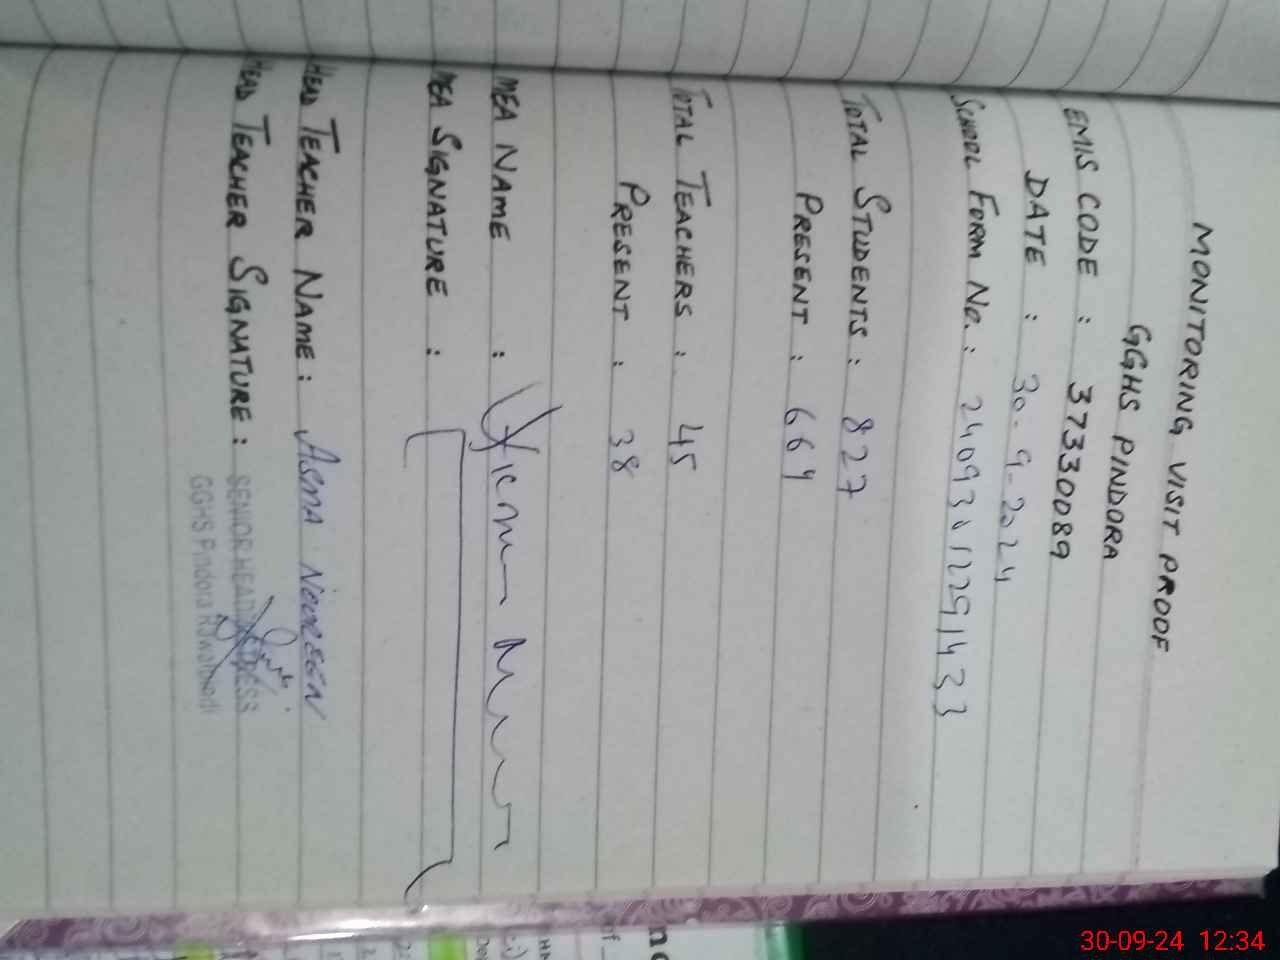 MONITORING VISIT PROOF
GGHS PINDORA
EMIS CODE : 37330089
DATE : 30-9-2024
SCHOOL FORM No.: 24093012291433
TOTAL STUDENTS : 827
PRESENT : 664
TOTAL TEACHERS : 45
PRESENT : 38
MEA NAME :
MEA SIGNATURE :
HEAD TEACHER NAME : ASMA NOUREEN
HEAD TEACHER SIGNATURE :
SENIOR HEADMISTRESS
GGHS Pindora Rawalpindi
30-09-24 12:34